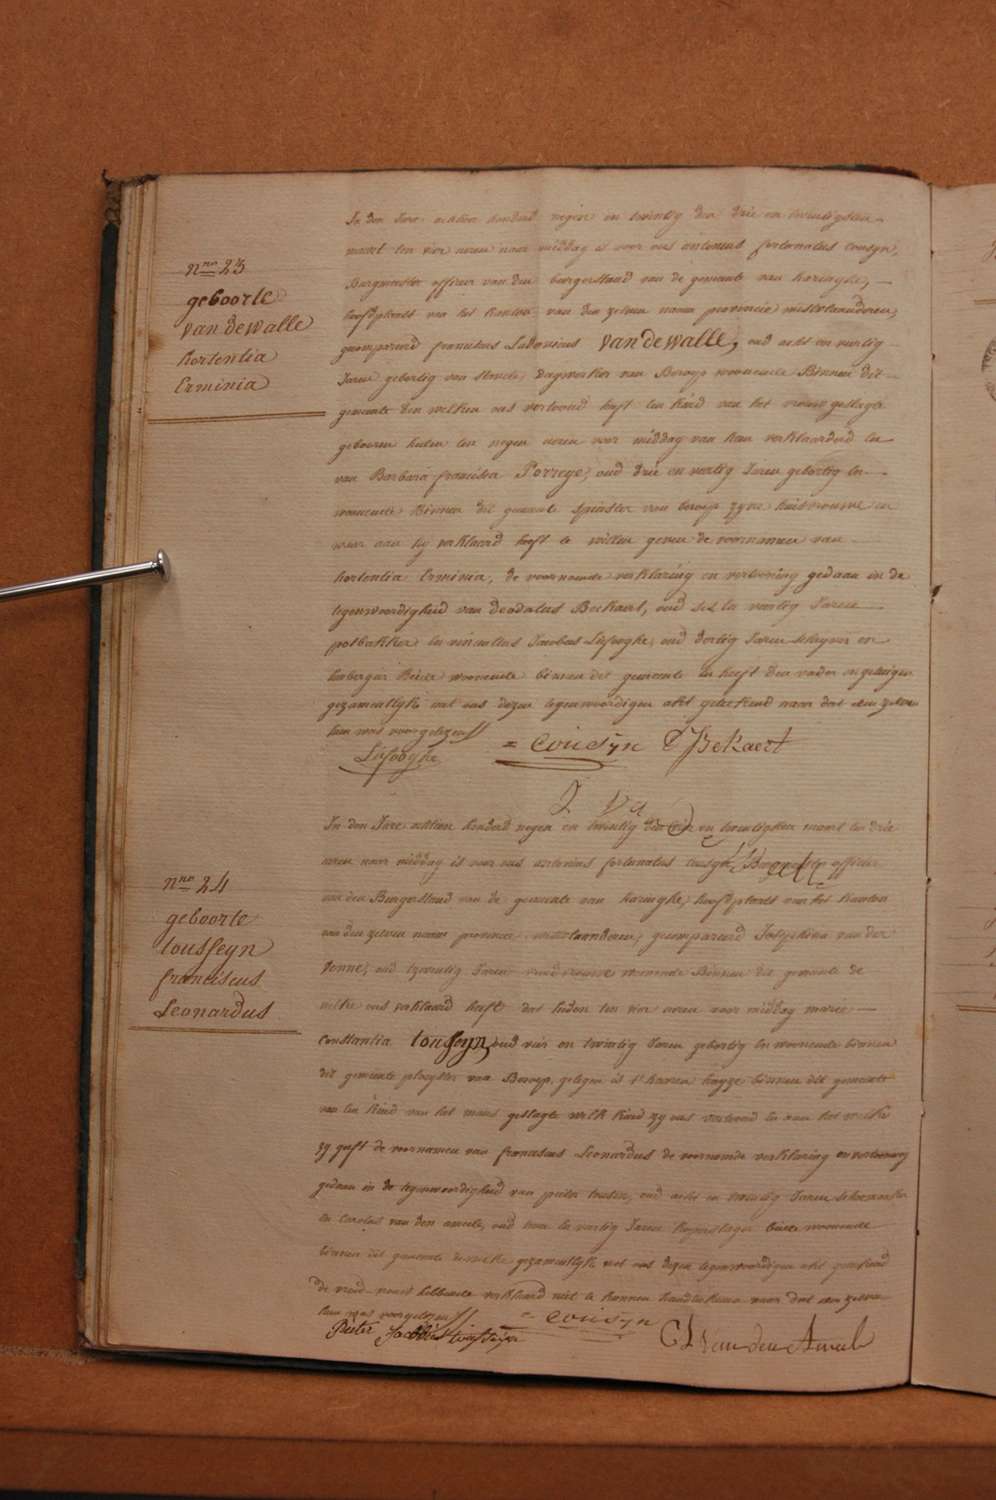 nro 23
geboorte
van de walle
hortentia
Erminia
In den Jare achtien honderd negen en twintig den drie en twintigsten
maert ten vier uren naer middag is voor ons antonius fortunatus cousyn,
Burgmeester officier van den burgerstand van de gemeente van haringhe,
hoofdplaets van het kanton van den zelven naem provincie westvlaanderen,
gecompareerd franciscus Ludovicus van de walle, oud acht en veertig
Jaren gebortig van stavele, dagwerker van Beroep woonende Binnen dit
gemeente den welken ons vertoond heeft een kind van het vrouw geslagte
geboren heden ten negen uren voor middag van hem verklaarderd en
van Barbara francisca Porreye, oud drie en veertig Jaren gebortig en
woonende Binnen dit gemeente spinster van beroep zyne huisvrouwe en
waer aan hy verklaerd heeft te willen geven de voornamen van
hortentia Erminia, de voornoemde verklaring en vertooning gedaan in de
tegenwoordigheid van deodatus Bekaert, oud ses en veertig Jaren
potbakker en vincentius Jacobus Lisooghe, oud dertig Jaren schryver en
herbergier Beide woonende binnen dit gemeente en heeft den vader en getuigen
gezamentlyk met ons dezen tegenwoordigen akt geteekend naer dat aen zelven
hun was voorgelezen
Lisooghe = Cousyn D Bekaert
nro 24
geboorte
tousseyn
franciscus
Leonardus
In den Jare achtien honderd negen en twintig den en twintigsten maert ten drie
uren naer middag is voor ons antonius fortunatus cousyn Burgmeester officier
van den Burgerstand van de gemeente van haringhe, hoofdplaets van het kanton
van den zelven naem provincie westvlaanderen, gecompareerd Josephina van der
oud tzwintig Jaren vroedvrouwe woonende Binnen dit gemeente de
welke ons verklaard heeft dat heden ten vier uren voor middag marie
Constantia tousseyn, oud vier en twintig Jaren gebortig en woonende binnen
dit gemeente van Beroep, gelegen is binnen dit gemeente
van een kind van het mans geslagte welk kind zy ons vertoond en aan het welke
zy geeft de voornamen van franciscus Leonardus de voornoemde verklaring en vertooning
gedaan in de tegenwoordigheid van pieter oud acht en twintig Jaren schoenmaker
en Carolus van den oud en veertig Jaren koperslager beide woonende
binnen dit gemeente de welke gezamentlyk met ons dezen tegenwoordigen akt geteekend
de vroed hebbende verklaard niet te kunnen handteekenen naer dat aen zelven
hun was voorgelezen
Pieter Jacobus tousseyn = Cousyn C L Van den